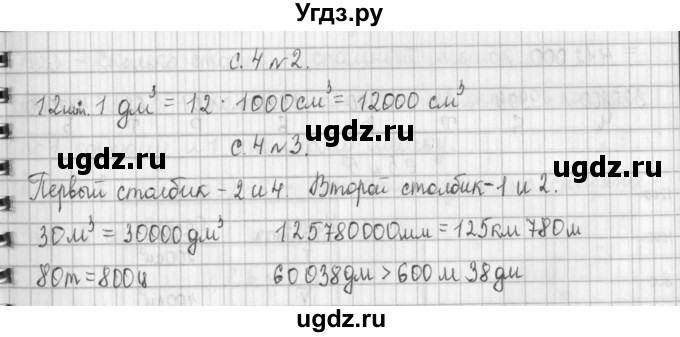 Угдз.ру
с. 4 № 2.
12шт. 1 дм³ = 12 · 1000см³ = 12000 см³
ugdz.ru ugdz.ru
с. 4 № 3.
Первый столбик - 2 и 4. Второй столбик - 1 и 2.
30м³ = 30000дм³ 125780000мм = 125км 780м
ugdz.ru ugdz.ru
80т = 800ц 60038дм > 600м 38дм
ugdz.ru